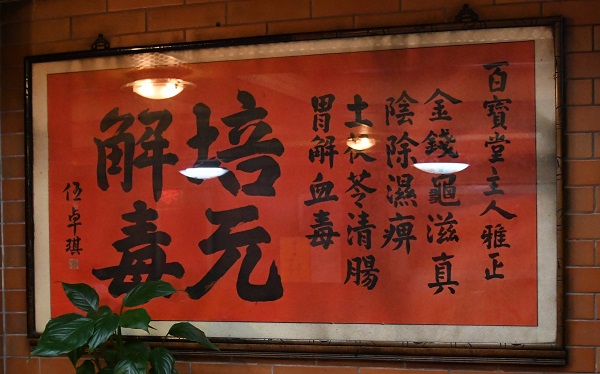 百寶堂主人雅正
金錢龜滋真
陰除濕痹
土茯苓清腸
胃解血毒
培元
解毒
伍卓琪